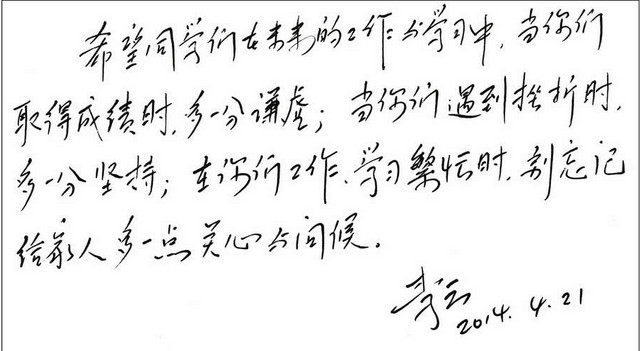 希望同学们在未来的工作与学习中，当你们
取得成绩时，多一分谦虚；当你们遇到挫折时，
多一分坚持；在你们工作、学习繁忙时，别忘记
给家人多一点关心与问候。
2014.4.21